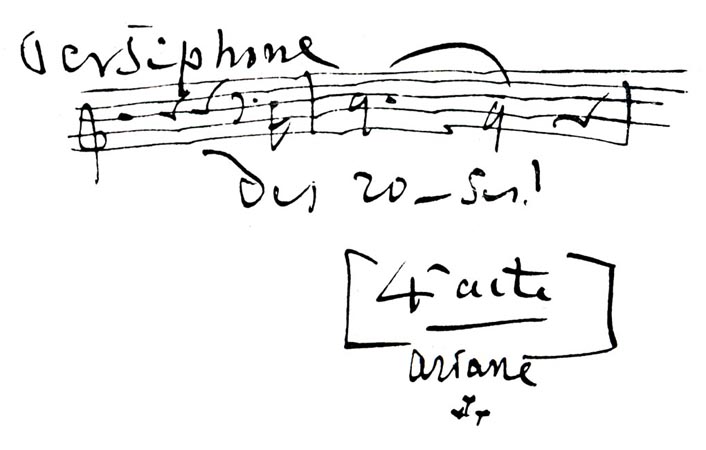 Perséphone
Des ro_ses!
4e acte
Ariane